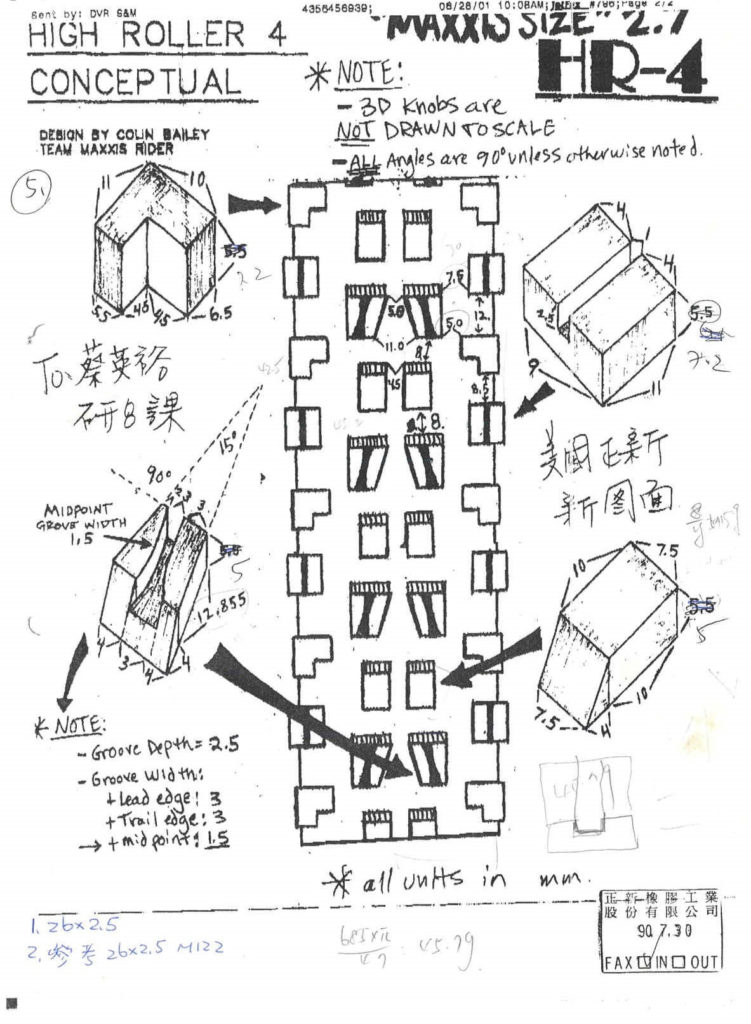 Sent by: DVR G&M 4356456939; 06/28/01 10:08AM; Page 2/2
HIGH ROLLER 4
CONCEPTUAL
MAXXIS SIZE" 2.7
HR-4
DESIGN BY COLIN BAILEY
TEAM MAXXIS RIDER
* NOTE:
- 3D Knobs are
NOT DRAWN TO SCALE
- ALL Angles are 90° unless otherwise noted.
5.
11 10
5.5
7.2
55 45 45 6.5
4 1 4
2.5
5.5
7.2
9 11
7.5
5.0 12.
5.0
11.0
8.
45
8.5
8.
To: 蔡英裕
研8課
美国正新
新图面
15°
90°
3 3
MIDPOINT
GROVE WIDTH
1.5
5.5
5
12.855
4 3 4 4
10 7.5
5.5
5
10
7.5 4
* NOTE:
- Groove Depth = 2.5
- Groove Width:
+ Lead edge: 3
+ Trail edge: 3
→ + midpoint: 1.5
* all units in mm.
1. 26x2.5
2. 參考 26x2.5 M122
685xπ
47
45.79
正新橡膠工業
股份有限公司
90.7.30
FAX IN OUT